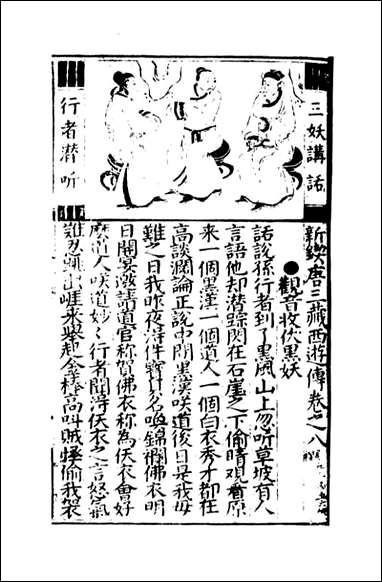 三妖講話
行者潛听
新鍥唐三藏西遊傳卷之八
●觀音收伏黑妖
話說孫行者到了黑風山上忽听草坡有人
言語他却潛踪閃在石崖之下偷睛观看原
來一個黑漢一個道人一個白衣秀才都在
高談濶論正說中間黑漢咲道後日是我母
難之日我昨夜淂件寶貝名喚錦襴佛衣明
日開宴邀請道官称賀佛衣称為佛衣會好
麽道人咲道妙〻行者聞淂佛衣之言怒氣
難忍跳出崖來举起金棒高叫賊怪偷我袈